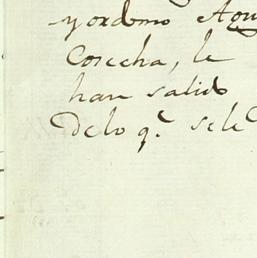 yordomo Agu
Cosecha, le
han salido
Delo q.e sele